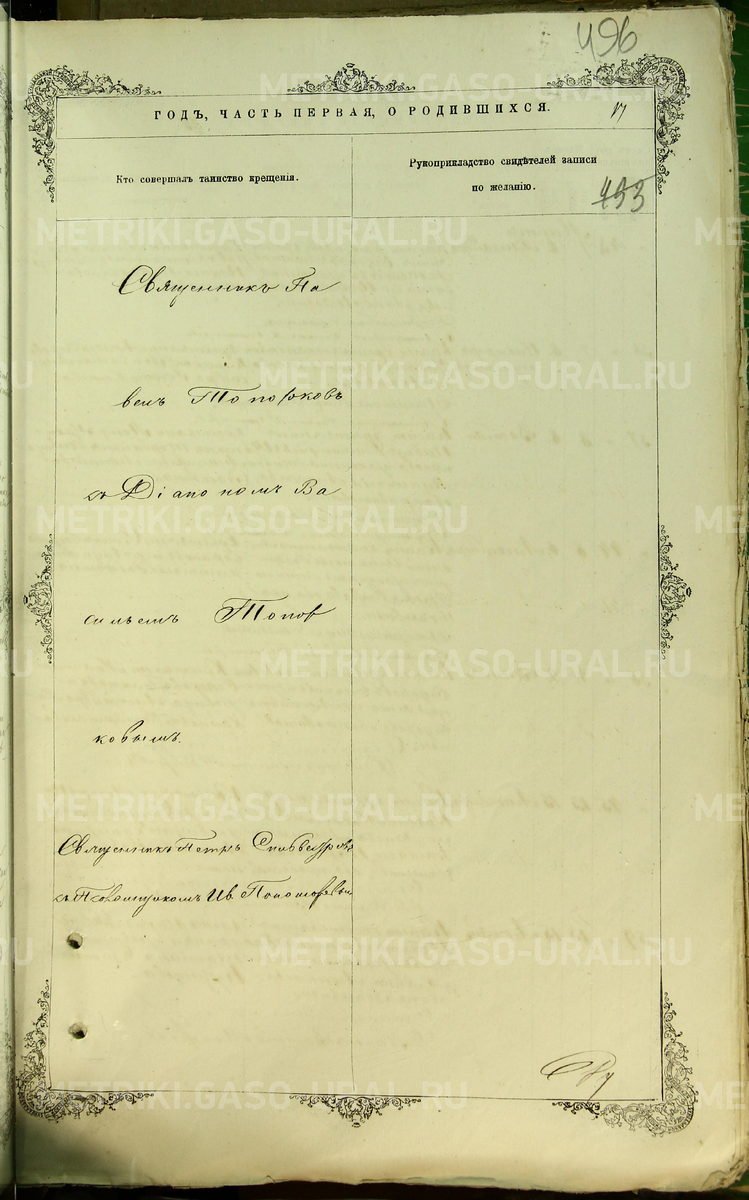 496
ГОДЪ, ЧАСТЬ ПЕРВАЯ, О РОДИВШИХСЯ.
Кто совершалъ таинство крещенія.
Рукоприкладство свидѣтелей записи
по желанію.
433
Священникъ Па
велъ Топорковъ
съ Діакономъ Ва
сильемъ Топор
ковымъ.
Священникъ Петръ
съ Псаломщикомъ Ив. Пономаревымъ
METRIKI.GASO-URAL.RU